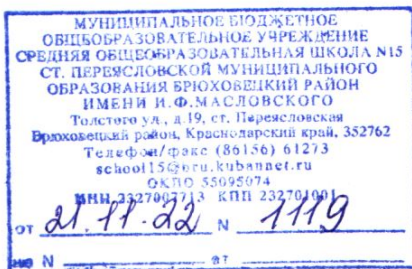 МУНИЦИПАЛЬНОЕ БЮДЖЕТНОЕ
ОБЩЕОБРАЗОВАТЕЛЬНОЕ УЧРЕЖДЕНИЕ
СРЕДНЯЯ ОБЩЕОБРАЗОВАТЕЛЬНАЯ ШКОЛА N15
СТ. ПЕРЕЯСЛОВСКОЙ МУНИЦИПАЛЬНОГО
ОБРАЗОВАНИЯ БРЮХОВЕЦКИЙ РАЙОН
ИМЕНИ И.Ф.МАСЛОВСКОГО
Толстого ул, д.19, ст. Переясловская
Брюховецкий район, Краснодарский край, 352762
Телефон/факс (86156) 61273
school15@bru.kubannet.ru
ОКПО 55095074
ИНН 2327007713 КПП 232701001
от 21.11.22 N 1119
на N от